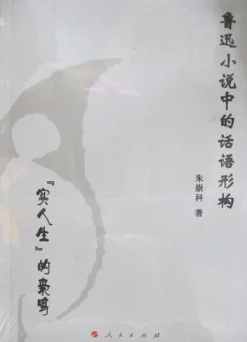 鲁迅小说中的话语形构
朱崇科 著
“实人生”的枭鸣
人民出版社